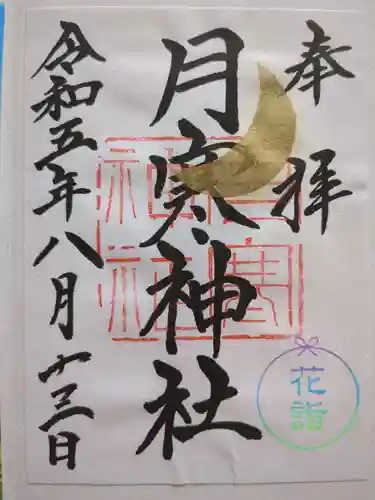 奉拝
月寒神社
令和五年八月十三日
月寒神社
花詣